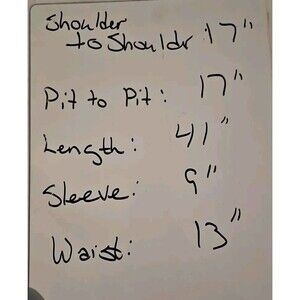 Shoulder
to Shouldr : 17"
Pit to Pit : 17"
Length : 41"
Sleeve : 9"
Waist : 13"